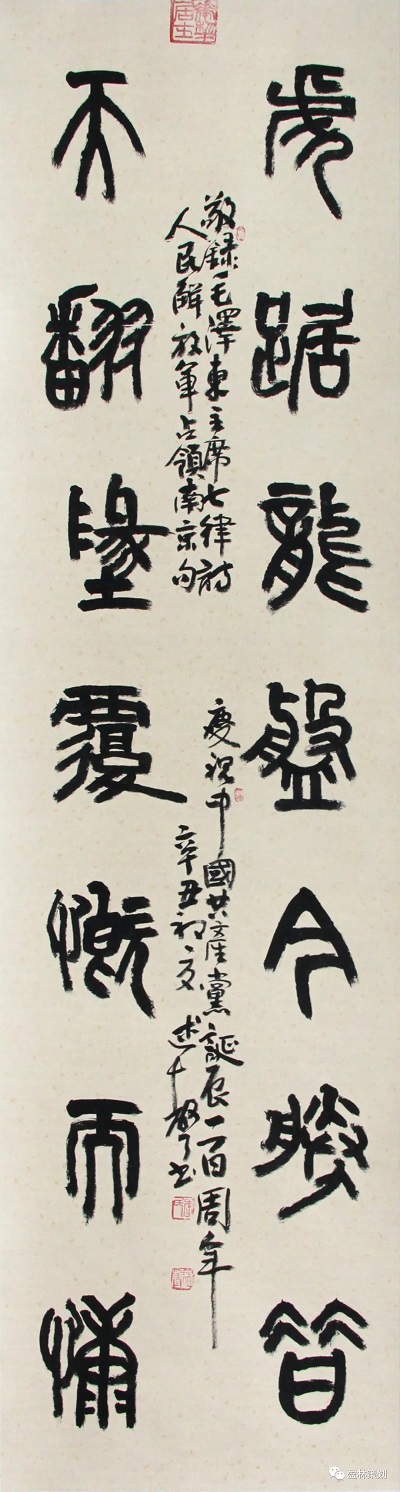 虎踞龍盤今勝昔
天翻墬覆慨而慷
敬録毛澤東主席七律詩
人民解放軍占領南京句
慶祝中國共產黨誕辰一百周年
辛丑初夏 書
盈林策划